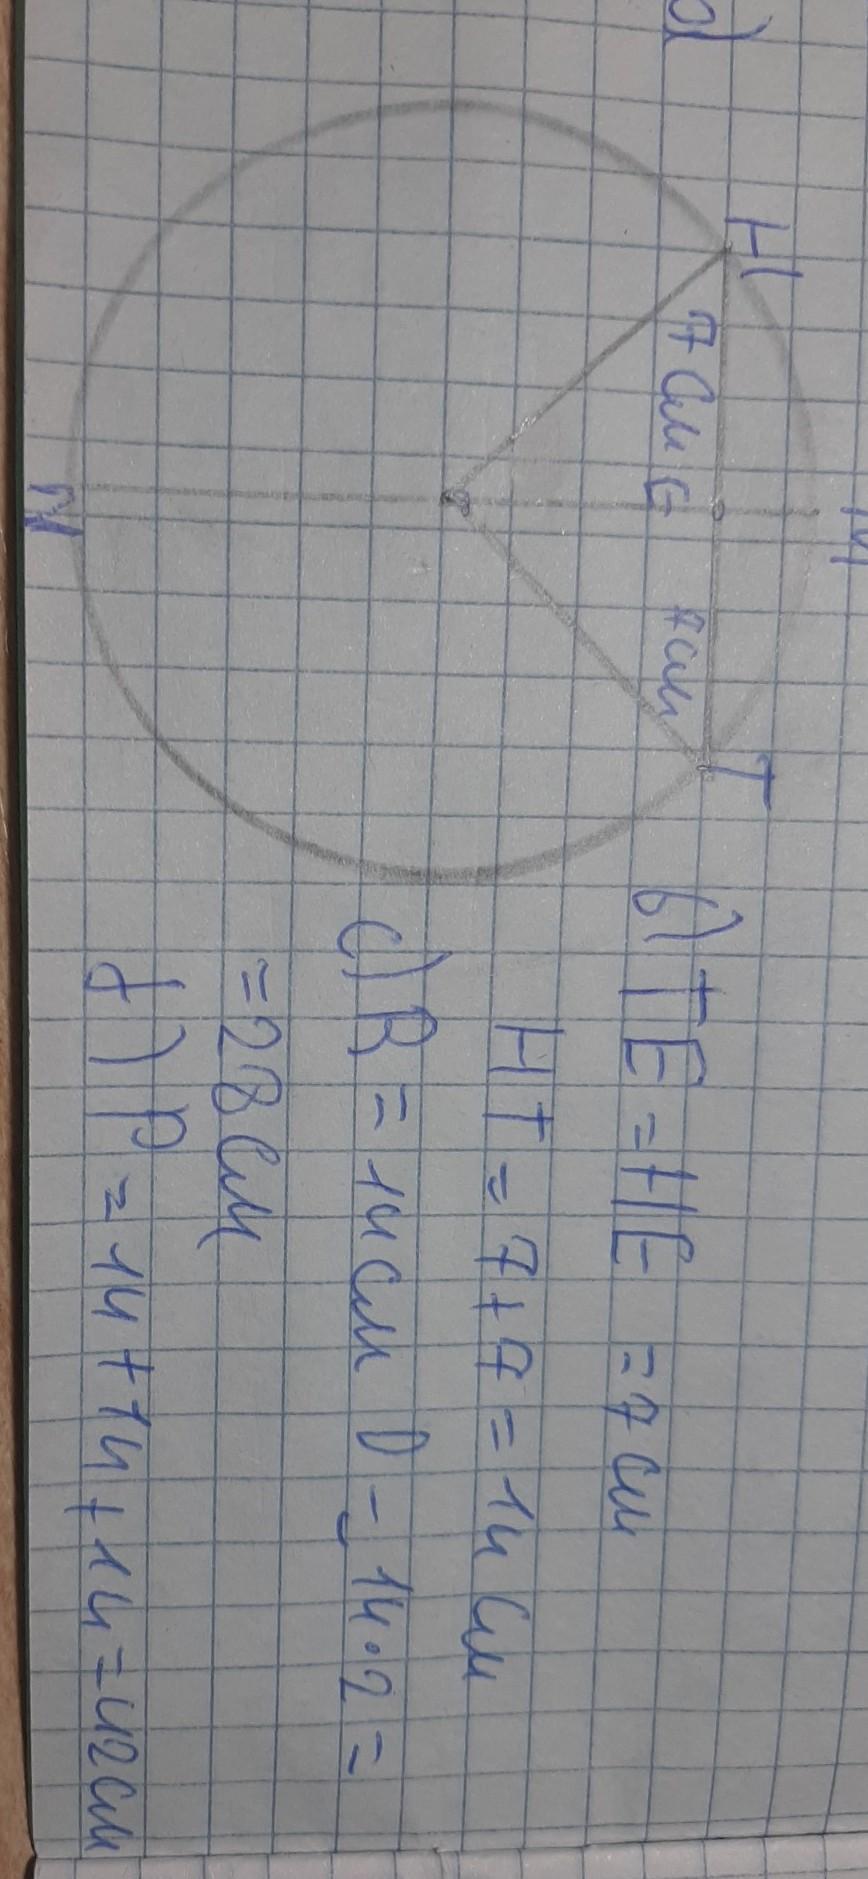 a)
M
H T
7 см E 7 см
N
b) TE = HE = 7 см
HT = 7 + 7 = 14 см
c) R = 14 см D = 14 · 2 =
= 28 см
d) P = 14 + 14 + 14 = 42 см